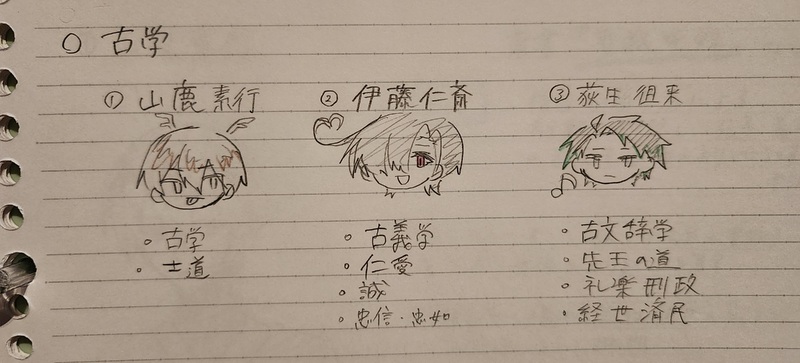 ○ 古学
① 山鹿 素行
② 伊藤 仁斎
③ 荻生 徂来
・古学
・士道
・古義学
・仁愛
・誠
・忠信・忠如
・古文辞学
・先王の道
・礼楽刑政
・経世済民